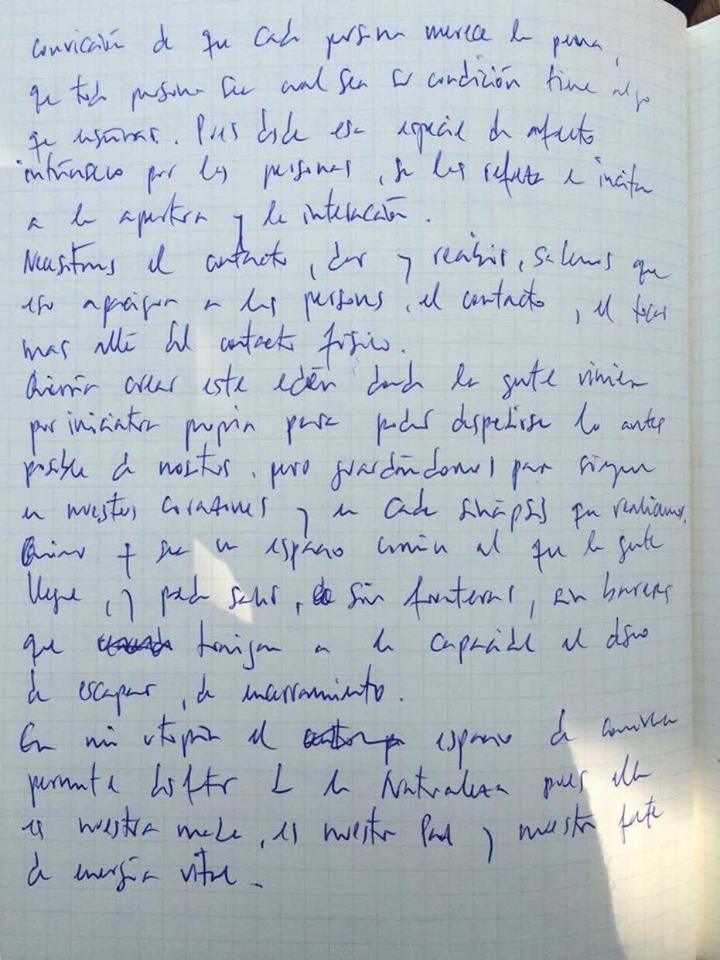 convicción de que cada persona merece la pena,
que toda persona sea cual sea su condición tiene algo
que enseñar. Pues desde esa especie de afecto
intrínseco por las personas, se les respeta e incita
a la apertura y la interacción.
Necesitamos el contacto, dar y recibir, sabemos que
eso apacigua a las personas, el contacto, el tocar
mas allá del contacto físico.
Querría crear este edén donde la gente viniera
por iniciativa propia para poder despedirse lo antes
posible de nosotros, pero guardándonos por siempre
en nuestros corazones y en cada sinápsis que realicemos.
Quiero q sea un espacio común al que la gente
llegue, y pueda salir, sin fronteras, sin barreras
que traigan a la capacidad el deseo
de escapar, de encerramiento.
En mi utopía el espacio de convivencia
permite disfrutar de la Naturaleza pues ella
es nuestra madre, es nuestra Paz y nuestra fuente
de energía vital.